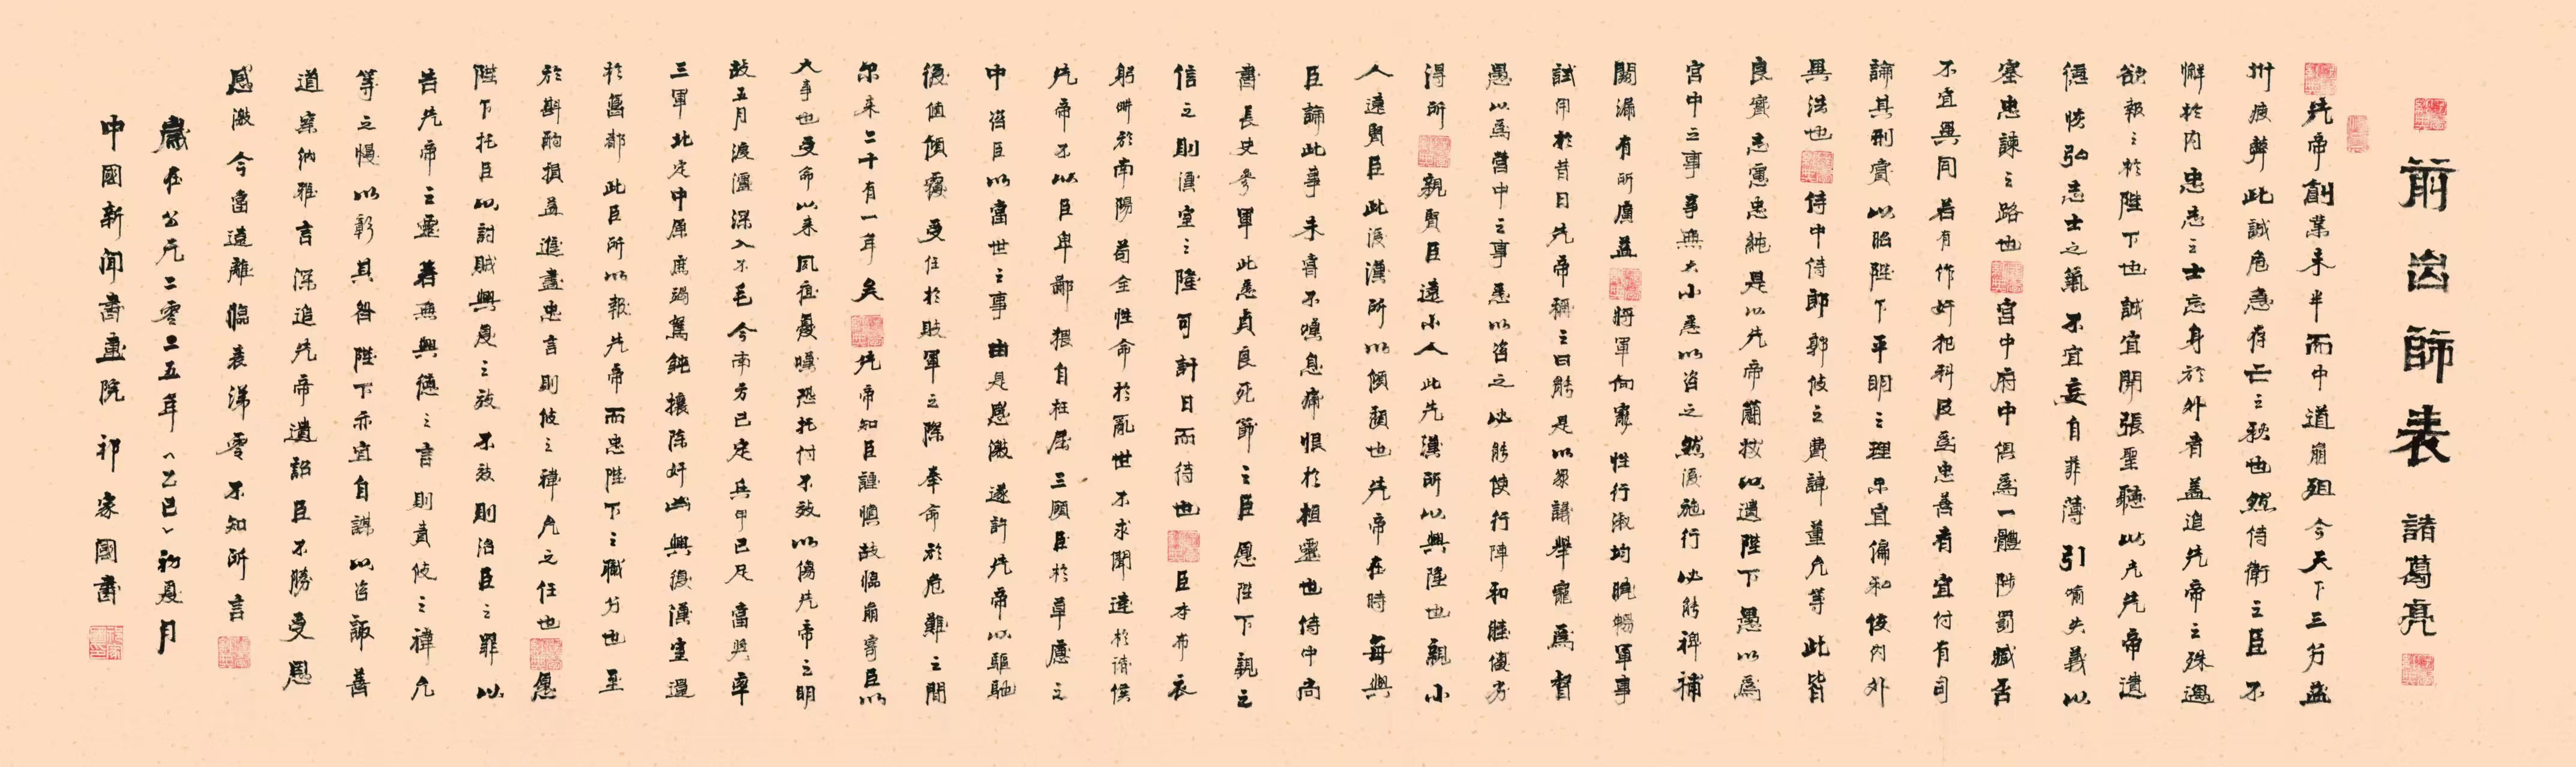 前出師表 諸葛亮
先帝創業未半而中道崩殂今天下三分益
州疲弊此誠危急存亡之秋也然侍衛之臣不
懈於內忠志之士忘身於外者蓋追先帝之殊遇
欲報之於陛下也誠宜開張聖聽以光先帝遺
德恢弘志士之氣不宜妄自菲薄引喻失義以
塞忠諫之路也宮中府中俱為一體陟罰臧否
不宜異同若有作奸犯科及為忠善者宜付有司
論其刑賞以昭陛下平明之理不宜偏私使內外
異法也侍中侍郎郭攸之費諱董允等此皆
良實志慮忠純是以先帝簡拔以遺陛下愚以為
宮中之事事無大小悉以咨之然後施行必能裨補
闕漏有所廣益將軍向寵性行淑均曉暢軍事
試用於昔日先帝稱之曰能是以眾議舉寵為督
愚以為營中之事悉以咨之必能使行陣和睦優劣
得所親賢臣遠小人此先漢所以興隆也親小
人遠賢臣此後漢所以傾頹也先帝在時每與
臣論此事未嘗不嘆息痛恨於桓靈也侍中尚
書長史參軍此悉貞良死節之臣愿陛下親之
信之則漢室之隆可計日而待也臣本布衣
躬耕於南陽苟全性命於亂世不求聞達於諸侯
先帝不以臣卑鄙猥自枉屈三顧臣於草廬之
中咨臣以當世之事由是感激遂許先帝以驅馳
後值傾覆受任於敗軍之際奉命於危難之間
爾來二十有一年矣先帝知臣謹慎故臨崩寄臣以
大事也受命以來夙夜憂嘆恐托付不效以傷先帝之明
故五月渡瀘深入不毛今南方已定兵甲已足當獎率
三軍北定中原庶竭駑鈍攘除奸凶興復漢室還
於舊都此臣所以報先帝而忠陛下之職分也至
於斟酌損益進盡忠言則攸之禕允之任也愿
陛下托臣以討賊興復之效不效則治臣之罪以
告先帝之靈若無興德之言則責攸之禕允
等之慢以彰其咎陛下亦宜自謀以咨諏善
道察納雅言深追先帝遺詔臣不勝受恩
感激今當遠離臨表涕零不知所言
歲在公元二零二五年（乙巳）初夏月
中國新聞書畫院 祁家國書